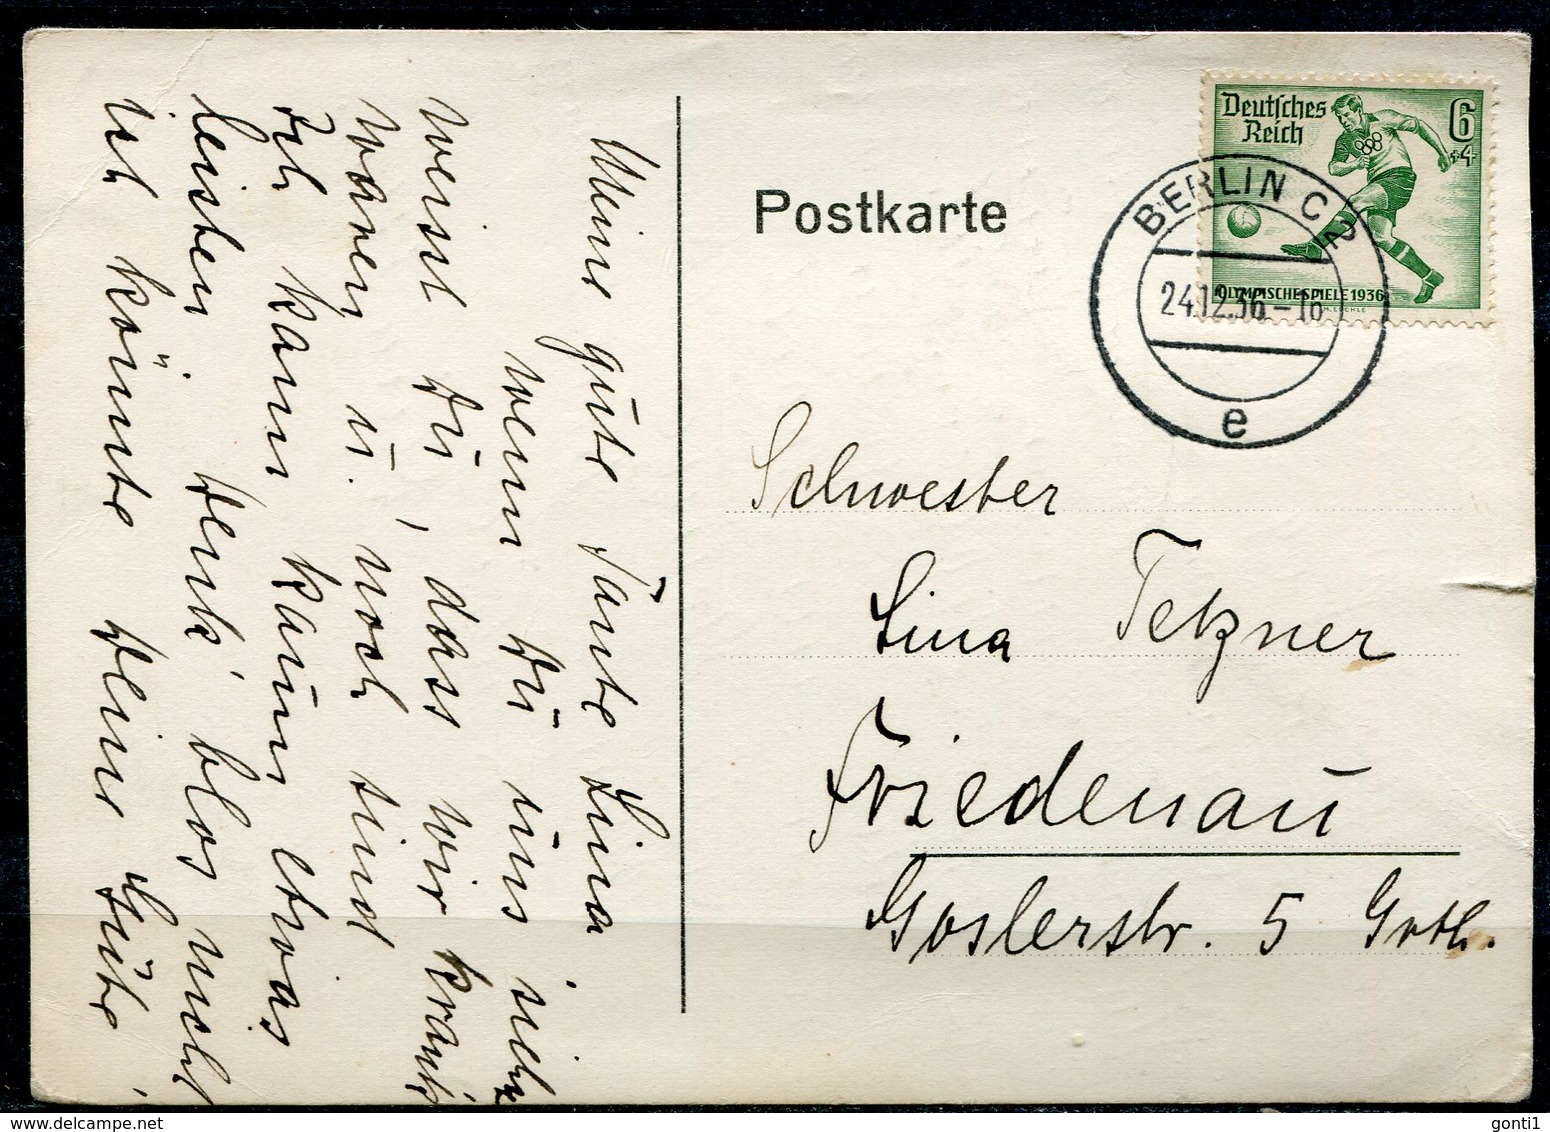 Meine gute Tante Lina
wenn Du uns
weisst Du, dass wir krank
waren u. noch sind
Ich kann kaum etwas
leisten. Denk' blos nicht
ich könnte Deine Güte
Postkarte
Deutsches
Reich
6
+4
OLYMPISCHE SPIELE 1936
BERLIN C2
24.12.36.-18
e
Schwester
Lina Tetzner
Friedenau
Goslerstr. 5 Grth.
www.delcampe.net
gonti1